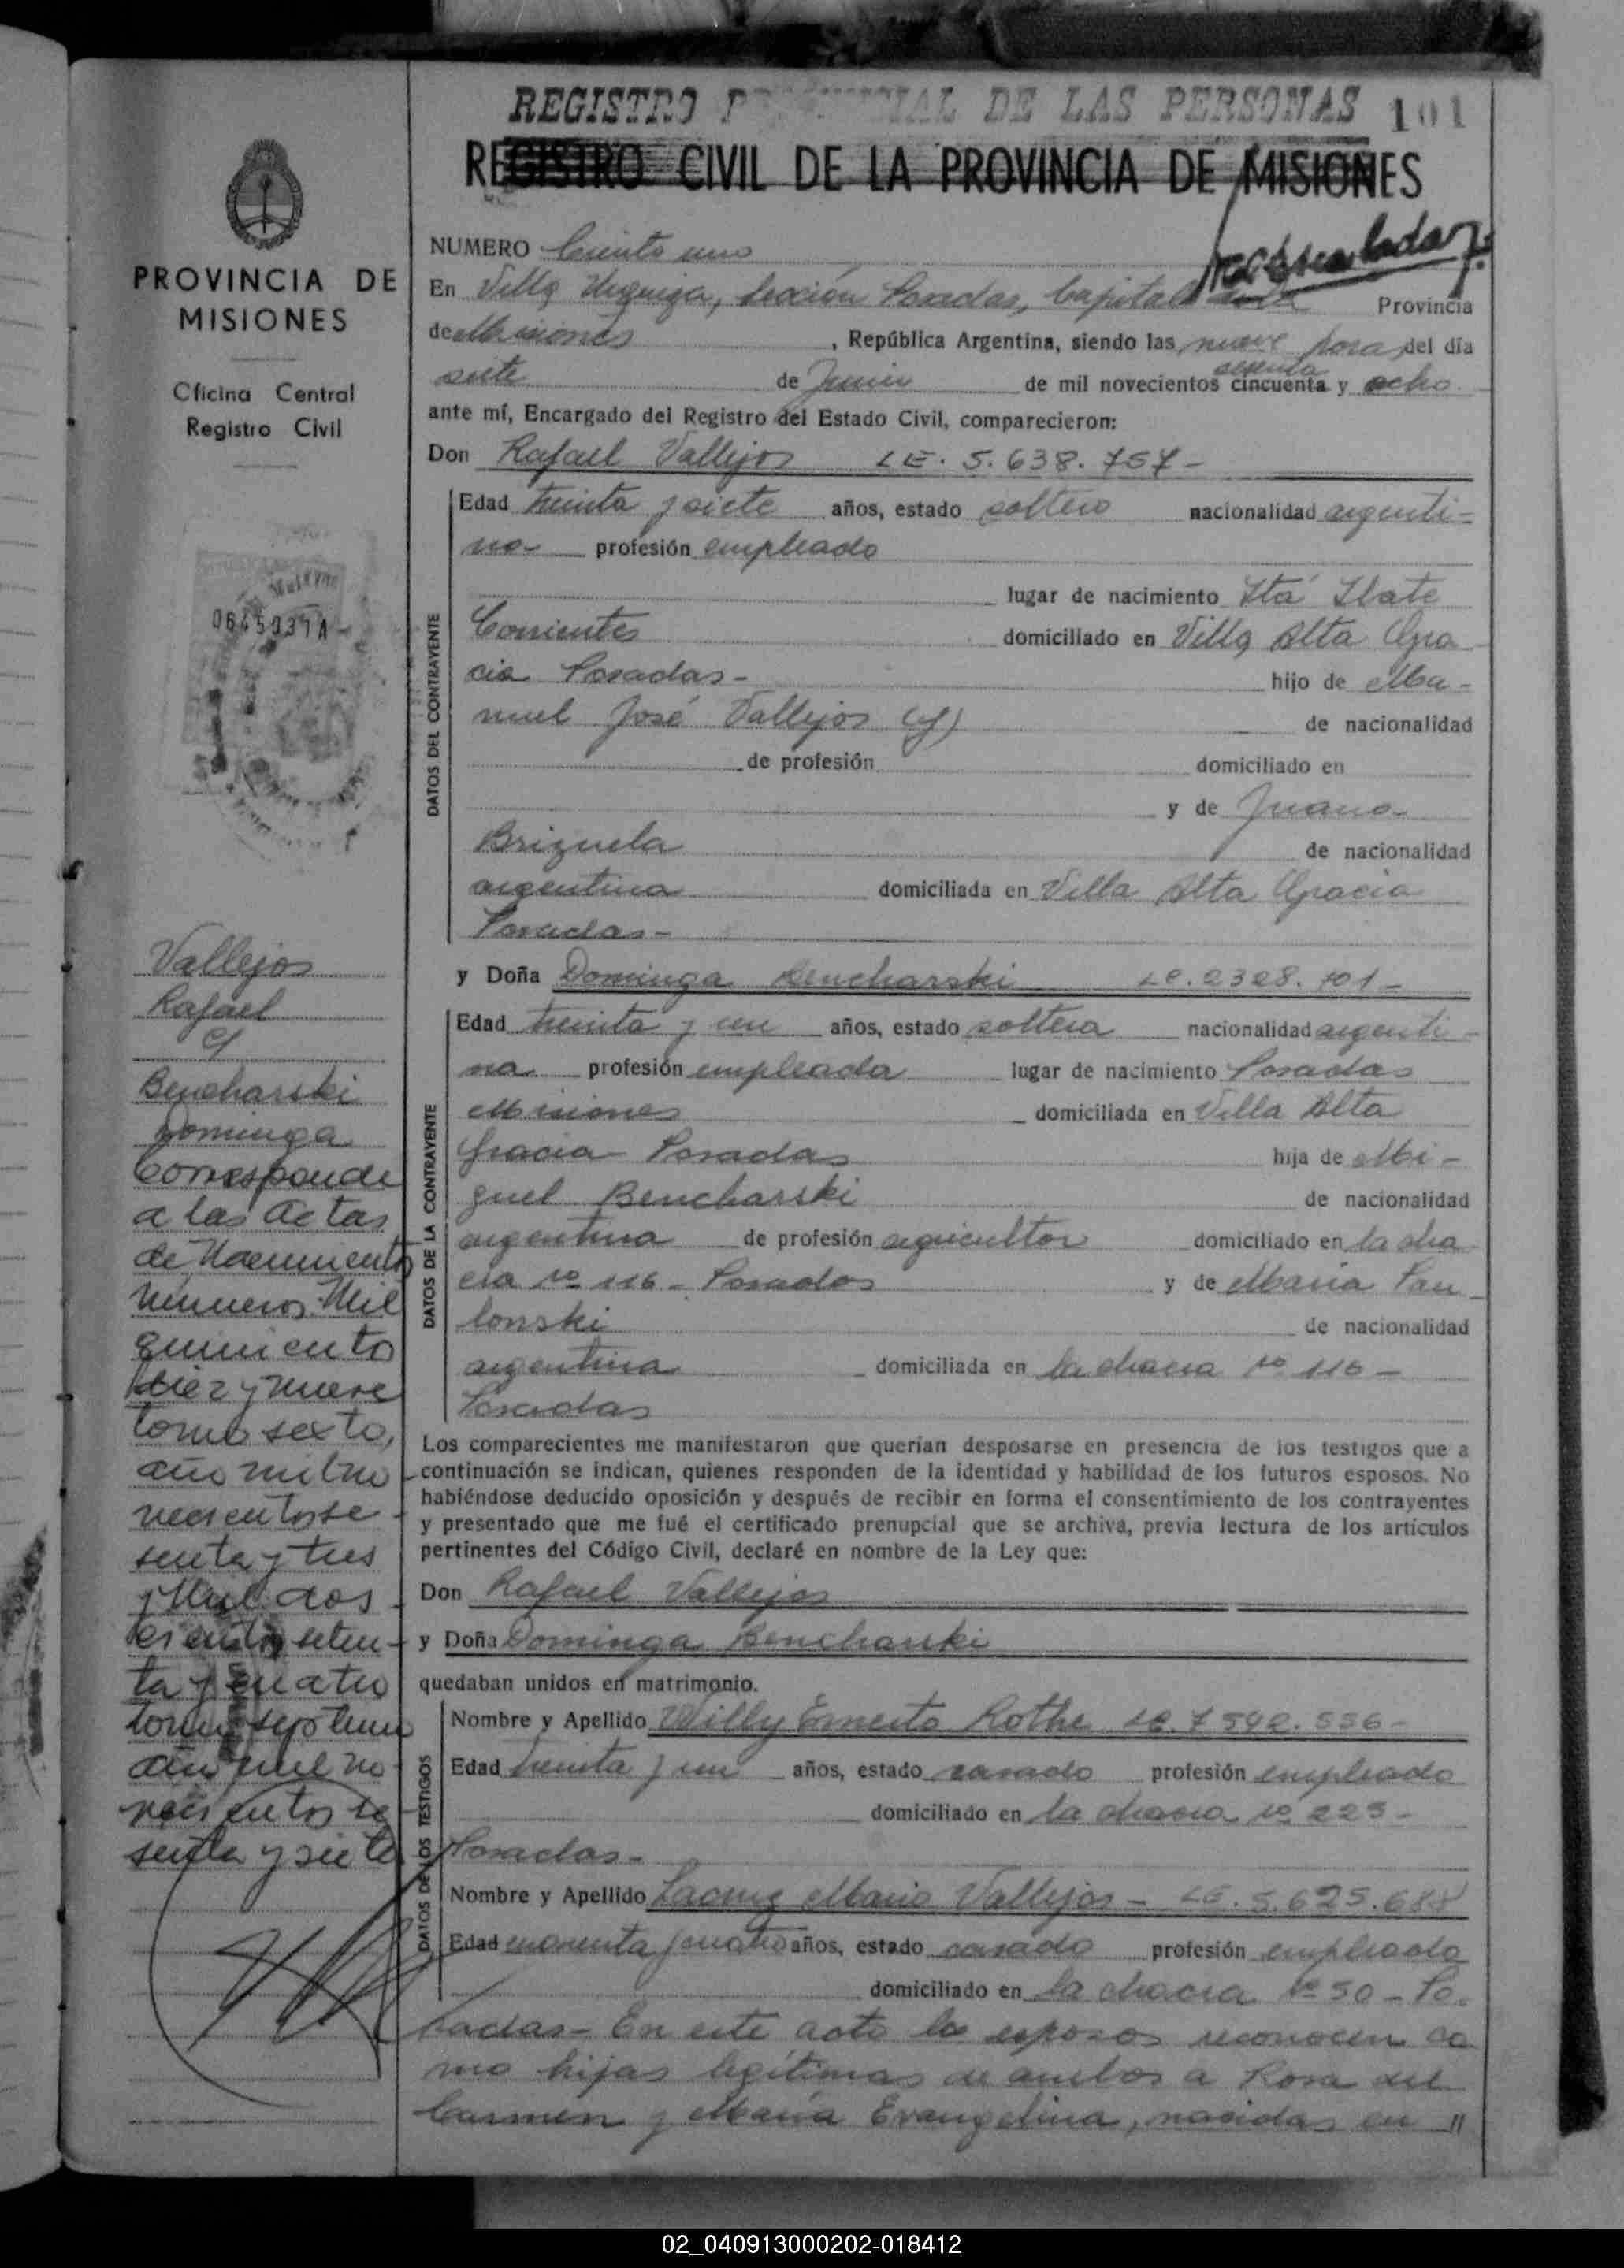 REGISTRO PROVINCIAL DE LAS PERSONAS 101
REGISTRO CIVIL DE LA PROVINCIA DE MISIONES
PROVINCIA DE
MISIONES
Oficina Central
Registro Civil
0645937A
NUMERO Ciento uno
En Villa Urquiza, Sección Posadas, Capital de la Provincia
de Misiones, República Argentina, siendo las nueve horas del día
siete de Junio de mil novecientos cincuenta sesenta y ocho
ante mí, Encargado del Registro del Estado Civil, comparecieron:
Don Rafael Vallejos LE. 5.638.757-
DATOS DEL CONTRAYENTE
Edad treinta y siete años, estado soltero nacionalidad argenti-
no- profesión empleado
lugar de nacimiento Itá Ibate
Corrientes domiciliado en Villa Alta Gra
cia Posadas- hijo de Ma-
nuel José Vallejos (f) de nacionalidad
de profesión domiciliado en
y de Juana
Brizuela de nacionalidad
argentina domiciliada en Villa Alta Gracia
Posadas-
y Doña Dominga Bencharski LC. 2328.701-
DATOS DE LA CONTRAYENTE
Edad treinta y un años, estado soltera nacionalidad argenti-
na profesión empleada lugar de nacimiento Posadas
Misiones domiciliada en Villa Alta
Gracia- Posadas hija de Mi-
guel Bencharski de nacionalidad
argentina de profesión agricultor domiciliado en la cha
cra Nº 116- Posadas y de María Pau
lonski de nacionalidad
argentina domiciliada en la chacra Nº 116-
Posadas
Los comparecientes me manifestaron que querían desposarse en presencia de los testigos que a
continuación se indican, quienes responden de la identidad y habilidad de los futuros esposos. No
habiéndose deducido oposición y después de recibir en forma el consentimiento de los contrayentes
y presentado que me fué el certificado prenupcial que se archiva, previa lectura de los artículos
pertinentes del Código Civil, declaré en nombre de la Ley que:
Don Rafael Vallejos
y Doña Dominga Bencharski
quedaban unidos en matrimonio.
DATOS DE LOS TESTIGOS
Nombre y Apellido Willy Ernesto Rothe LE. 7542.556-
Edad treinta y un años, estado casado profesión empleado
domiciliado en la chacra Nº 225-
Posadas-
Nombre y Apellido Mario Vallejos- LE. 5.625.688
Edad cuarenta y cuatro años, estado casado profesión empleado
domiciliado en la chacra Nº 50- Po-
sadas- En este acto los esposos reconocen co
mo hijas legítimas de ambos a Rosa del
Carmen y María Evangelina, nacidas en "
Vallejos
Rafael
c/
Bencharski
Dominga
Corresponde
a las actas
de Nacimiento
números: Mil
quinientos
diez y nueve
tomo sexto,
año mil no
vecientos se
senta y tres
y Mil dos
cientos seten-
ta y cuatro
tomo septimo
año mil no
vecientos se
senta y siete
02_040913000202-018412